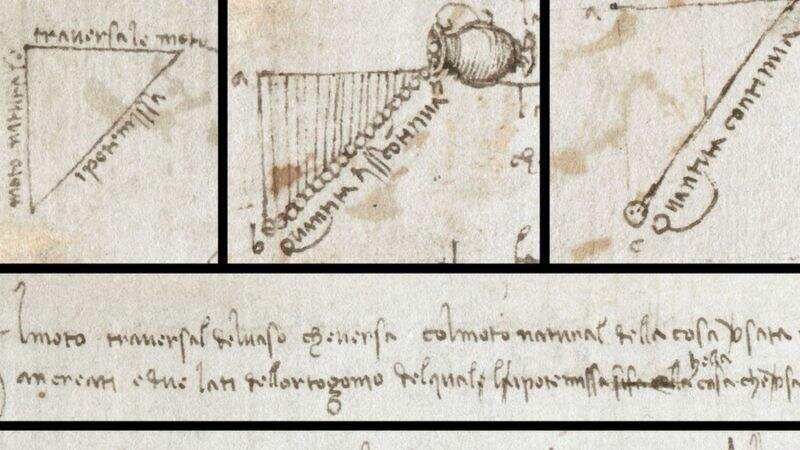 traversale moto
moto naturale
ipotenissa
a
b
quantita continua
a
c
quantita continua
lmoto traversal delvaso cheversa colmoto natural della cosa
ancreati edue lati dellortogomo delquale ipotenissa nella cosa che